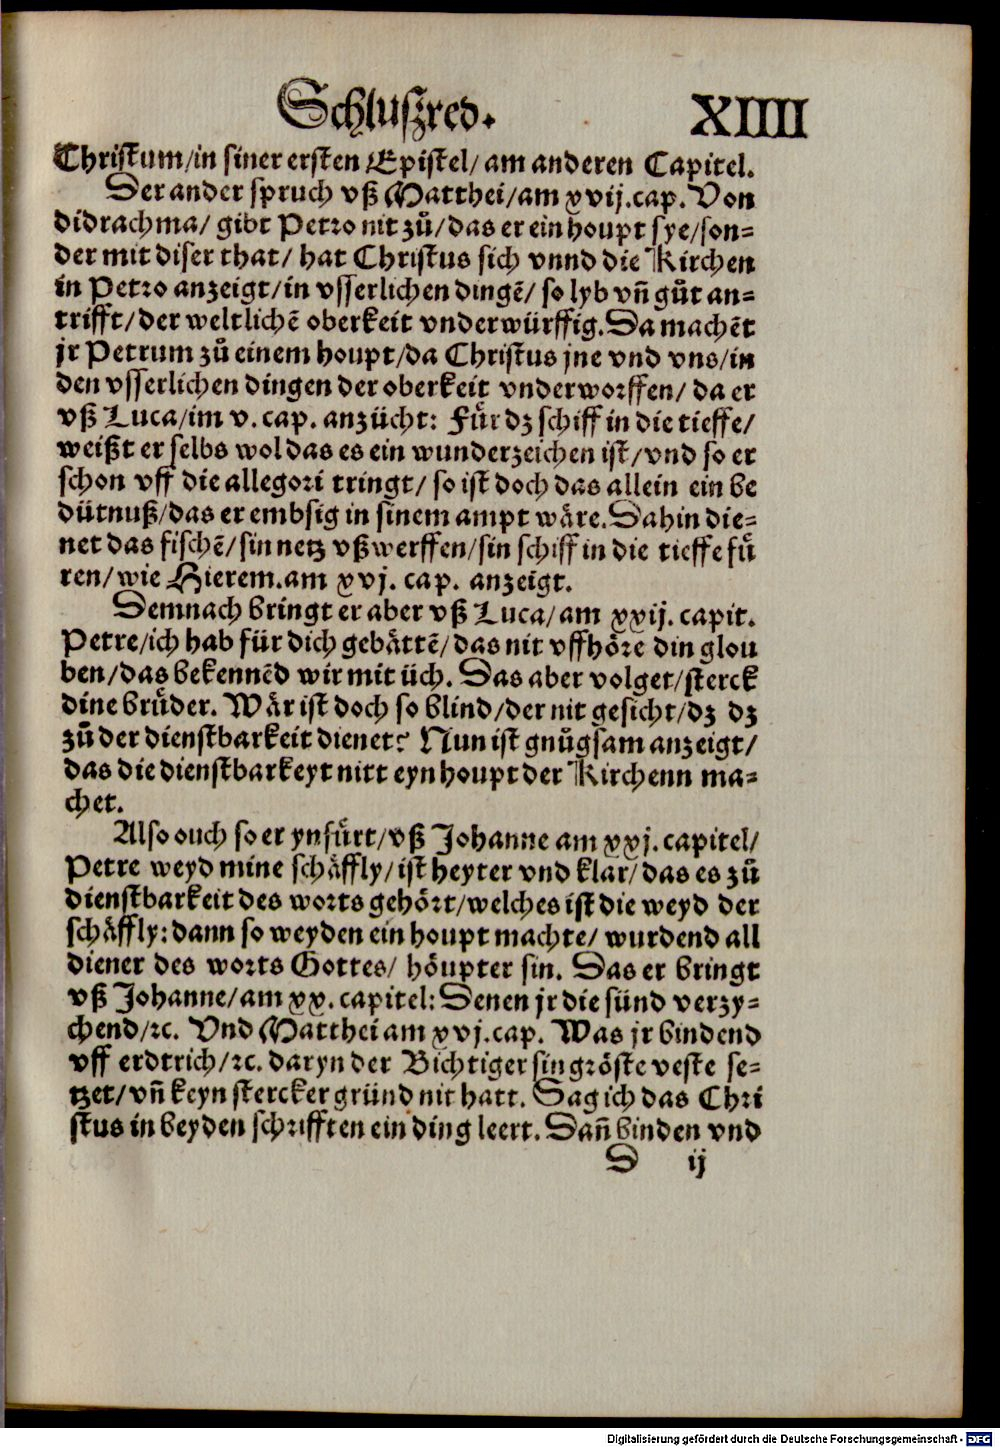 Schluſzred. XIIII
Chriſtum/in ſiner erſten Epiſtel/ am anderen Capitel.
Der ander ſpruch vß Matthei/am xvij.cap. Von
didrachma/ gibt Petro nit zů/das er ein houpt ſye/ſon⸗
der mit diſer that/ hat Chriſtus ſich vnnd die Kirchen
in Petro anzeigt/in vſſerlichen dingē/ ſo lyb vñ gůt an⸗
trifft/der weltlichē oberkeit vnderwürffig. Da machēt
jr Petrum zů einem houpt/da Chriſtus jne vnd vns/in
den vſſerlichen dingen der oberkeit vnderworffen/ da er
vß Luca/im v. cap. anzücht: Fuͤr dz ſchiff in die tieffe/
weißt er ſelbs wol das es ein wunderzeichen iſt/vnd ſo er
ſchon vff die allegori tringt/ ſo iſt doch das allein ein be
dütnuß/das er embſig in ſinem ampt wäre. Dahin die⸗
net das fiſchē/ſin netz vßwerffen/ſin ſchiff in die tieffe fuͤ
ren/wie Hierem.am xvj. cap. anzeigt.
Demnach bringt er aber vß Luca/am xxij. capit.
Petre/ich hab für dich gebättē/das nit vffhöre din glou
ben/das bekennēd wir mit üch. Das aber volget/ſterck
dine bruͤder. Wär iſt doch ſo blind/der nit geſicht/dz dz
zů der dienſtbarkeit dienet? Nun iſt gnůgſam anzeigt/
das die dienſtbarkeyt nitt eyn houpt der Kirchenn ma⸗
chet.
Alſo ouch ſo er ynfuͤrt/vß Johanne am xxj. capitel/
Petre weyd mine ſchäffly/iſt heyter vnd klar/das es zů
dienſtbarkeit des worts gehört/welches iſt die weyd der
ſchäffly: dann ſo weyden ein houpt machte/ wurdend all
diener des worts Gottes/ höupter ſin. Das er bringt
vß Johanne/am xx. capitel: Denen jr die ſünd verzy⸗
chend/ꝛc. Vnd Matthei am xvj.cap. Was jr bindend
vff erdtrich/ꝛc. daryn der Bichtiger ſin gröſte veſte ſe⸗
tzet/vñ keyn ſtercker gründ nit hatt. Sag ich das Chri
ſtus in beyden ſchrifften ein ding leert. Dañ binden vnd
D ij
Digitalisierung gefördert durch die Deutsche Forschungsgemeinschaft - DFG